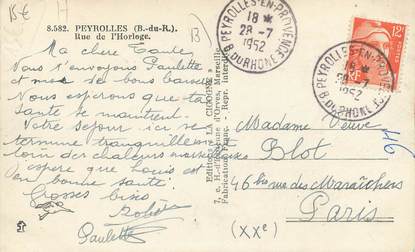 B€
B
8.582. PEYROLLES (B.-du-R.).
Rue de l'Horloge.
Ma chère Tante
Nous t'envoyons Paulette
et moi de bons baisers
Nous espérons que ta
santé se maintient.
Notre séjour ici se
termine tranquillement
loin des chaleurs marseillaises
J'espère que Louis est
en bonne santé
Grosses bises
Paulette
Edition LA CIGOGNE
7, r. H.-Estienne d'Orves, Marseille
Fabrication Franç. - Repr. interdite
PEYROLLES-EN-PROVENCE
18 *
28-7
1952
B. DU RHONE
12F
RF
PEYROLLES-EN-PROVENCE
18 *
28-7
1952
B. DU RHONE
Madame Veuve
Blot
46 bis rue des Maraîchers
Paris
(XXe)